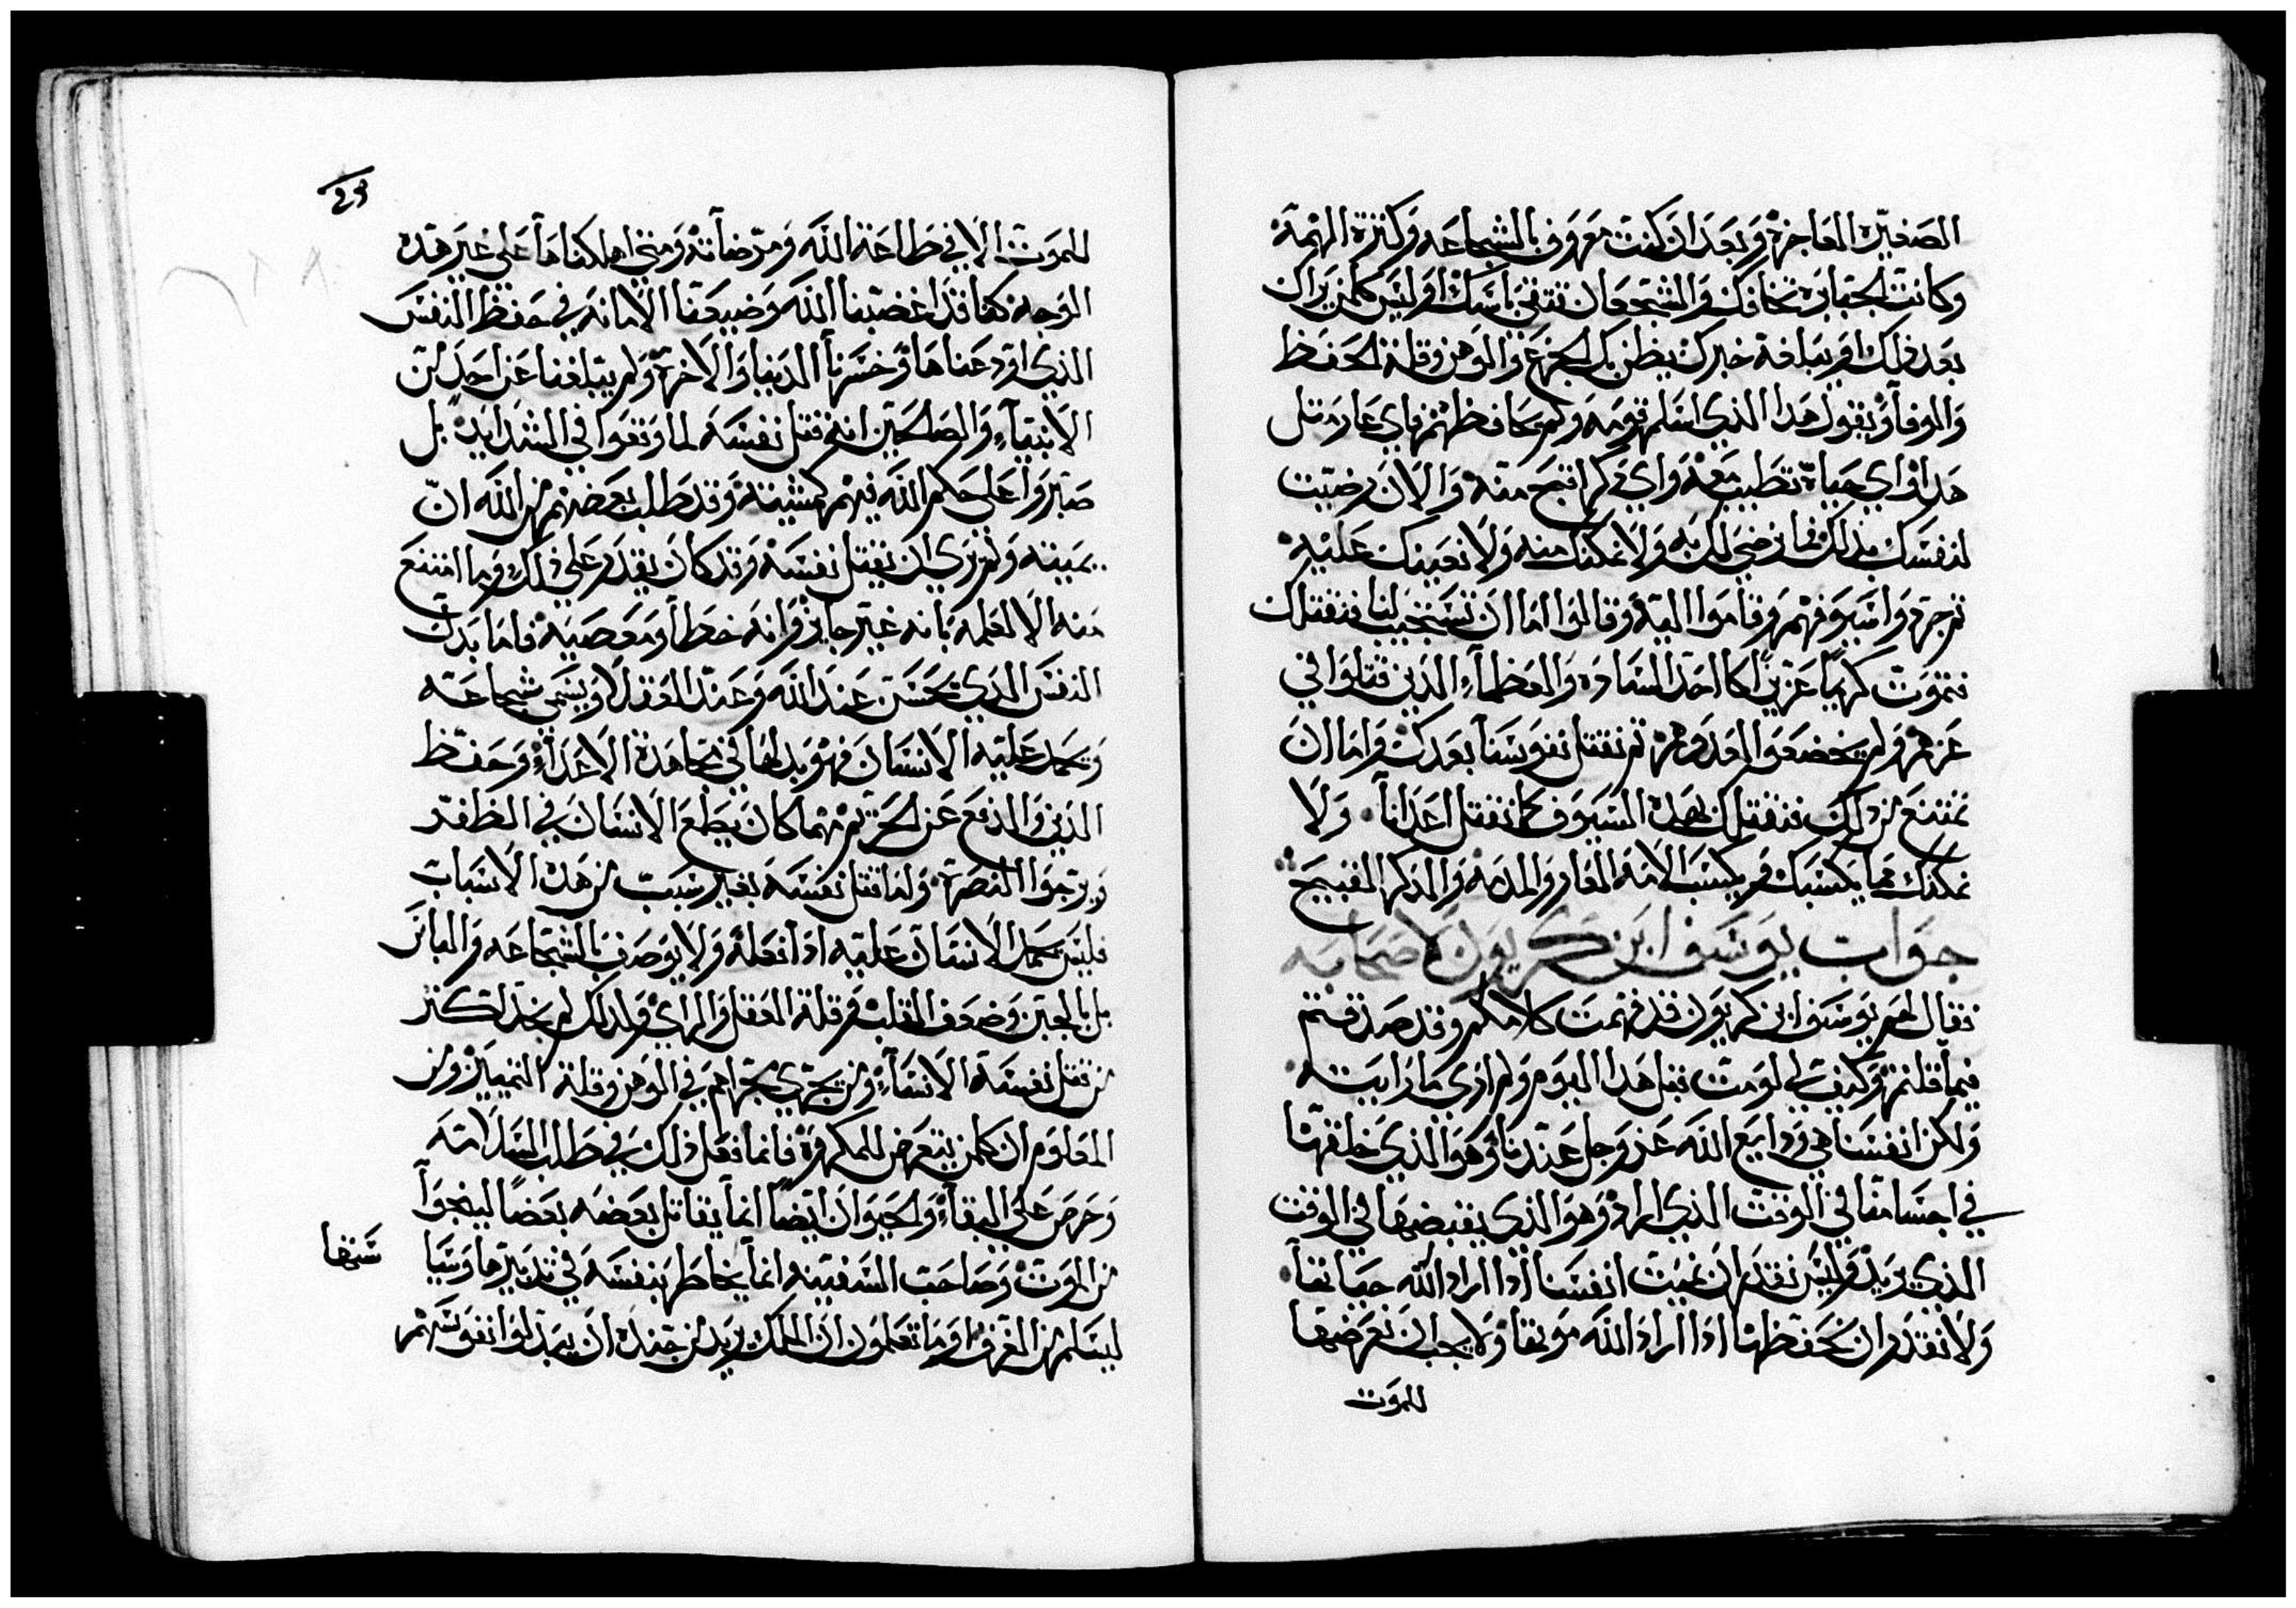 الصغيره العاجزه وبعد ان كنت معروف بالشجاعه وكثرة الهمة
وكانت الجبابرة تخافك والشجعان تتقي باسك اوليس كلمن يراك
بعد ذلك او يبلغه خبرك يظن بك الجزع والوهن وقلة الحفظ
والوفا ويقول هذا الذي اسلم قومه ولم يحافظهم فاي عار مثل
هذا واي حياة تطيب معه واي ذكر اقبح منه والان رضيت
لنفسك بذلك فما نرضى لك به ولا نمكنك منه ولا نعينك عليه
ثم جردوا سيوفهم وقاموا اليه وقالوا اما ان تستجيب لنا فنقتلك
فتموت كريما عزيزا كاحد الساده والعظمآء الذين قتلوا في
عزهم ولم يخضعوا لعدوهم ثم نقتل نفوسنا بعدك واما ان
تمتنع من ذلك فنقتلك بهذه السيوف كما نقتل اعدانا ولا
نمكنك مما يكسبك ويكسب الامه العار والمذمه والذكر القبيح
جواب يوسف ابن كريون لاصحابه
فقال لهم يوسف ابن كريون قد فهمت كلامكم وقد صدقتم
فيما قلتم وكيف لي لو مت قبل هذا اليوم ولم ارى ما رايته
ولكن انفسنا هي ودايع الله عز وجل عندنا وهو الذي خلقها
في اجسامنا في الوقت الذي اراد وهو الذي يقبضها في الوقت
الذي يريد وليس نقدر ان نميت انفسنا اذا اراد الله حياتنا
ولا نقدر ان نحفظها اذا اراد الله موتنا ولا يجب ان نعرضها
للموت
للموت الا في طاعة الله ومرضاته ومتى اهلكناها على غير هذه
الوجه كنا قد اغضبنا الله وضيعنا الامانه في حفظ النفس
الذي اودعناها وخسرنا الدنيا والاخرة ولم يبلغنا عن احد من
الانبيآء والصالحين انه قتل نفسه لما وقعوا في الشدايد بل
صبروا على حكم الله فيهم كمشيته وقد طلب بعضهم من الله ان
يميته ولم يرى ان يقتل نفسه وقد كان يقدر على ذلك وما امتنع
منه الا لعلمه بانه غير جايز وانه خطا ومعصيه فاما بدل
النفس الذي يحسن عند الله وعند العقلا ويسمى شجاعه
ويحمد عليه الانسان فهو بدلها في مجاهدة الاعدآء وحفظ
الدين والدفع عن الحريم مهما كان يطمع الانسان في الظفر
ويرجوا النصره وانما قتل نفسه بغير سبب من هذه الاسباب
فليس يحمد الانسان عليه اذا فعله ولا يوصف بالشجاعه والباس
بل بالجبن وضعف القلب وقلة العقل والراي ولذلك لم نجد اكثر
من تقتل نفسه الا النسآء ومن يجري مجراهم في الوهن وقلة التمييز ومن
المعلوم ان كلمن يتعرض للمكروه فانما فعل ذلك في طلب السلامه
وحرص على البقآء والحيوان ايضا انما يقاتل بعضه بعضا لينجوا
من الموت وصاحب السفينه انما يخاطر بنفسه في تدبيرها وسيا
ستها
ليسلم من الغرق او ما تعلمون ان الملك يريد من جنده ان يبذلوا نفوسهم